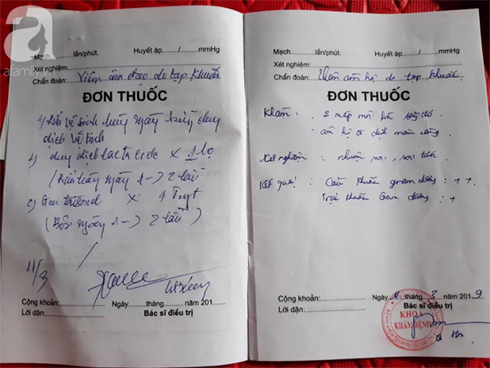 afamily
Mạch lần/phút. Huyết áp / mmHg
Xét nghiệm:
Chẩn đoán: Viêm âm đạo do tạp khuẩn
ĐƠN THUỐC
1) Rửa vệ sinh hàng ngày bằng dung
dịch vệ sinh
2) dung dịch lactacide x 1 lọ
(Rửa hàng ngày 1 -> 2 lần)
x 1 Tuýp
(Bôi ngày 1 -> 2 lần)
11/3
Cộng khoản: Ngày tháng năm 201
Lời dặn: Bác sĩ điều trị
Mạch lần/phút. Huyết áp / mmHg
Xét nghiệm:
Chẩn đoán: Viêm âm hộ do tạp khuẩn
ĐƠN THUỐC
Khám: 2 mép môi bé
âm hộ có dịch màu vàng
Xét nghiệm: nhuộm soi, soi tươi
Kết quả: Cầu khuẩn gram dương: ++
Trực khuẩn Gram dương: +
Cộng khoản: Ngày 11 tháng 3 năm 2019
Lời dặn: Bác sĩ điều trị
KHOA
KHÁM BỆNH